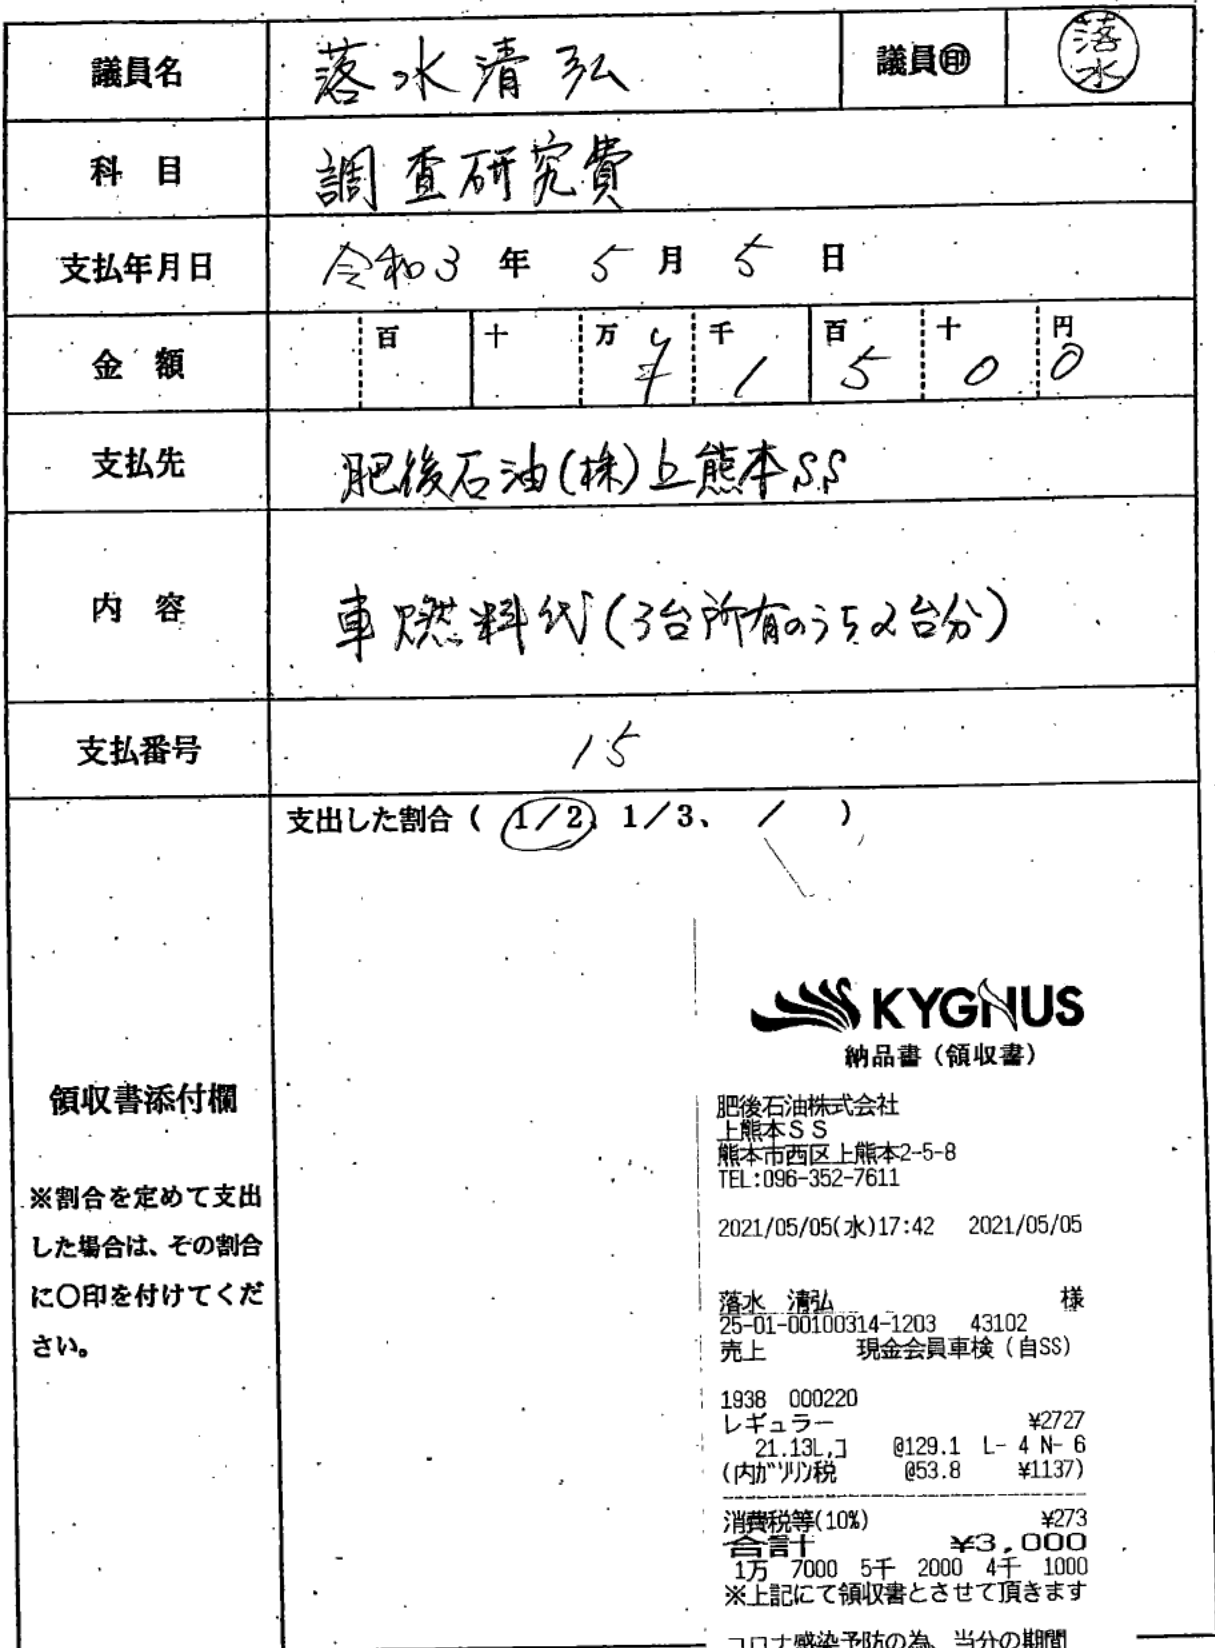 議員名 落水清弘 議員㊞ 落水
科 目 調査研究費
支払年月日 令和3 年 5 月 5 日
金 額 百 十 万 千 百 十 円
¥ 1 5 0 0
支払先 肥後石油(株)上熊本SS
内 容 車燃料代(3台所有のうち2台分)
支払番号 15
支出した割合 ( 1/2、1/3、 / )
領収書添付欄
※割合を定めて支出
した場合は、その割合
に〇印を付けてくだ
さい。
KYGNUS
納品書(領収書)
肥後石油株式会社
上熊本SS
熊本市西区上熊本2-5-8
TEL:096-352-7611
2021/05/05(水)17:42 2021/05/05
落水 清弘 様
25-01-00100314-1203 43102
売上 現金会員車検(自SS)
1938 000220
レギュラー ¥2727
21.13L,コ @129.1 L- 4 N- 6
(内ガソリン税 @53.8 ¥1137)
消費税等(10%) ¥273
合計 ¥3,000
1万 7000 5千 2000 4千 1000
※上記にて領収書とさせて頂きます
コロナ感染予防の為、当分の期間